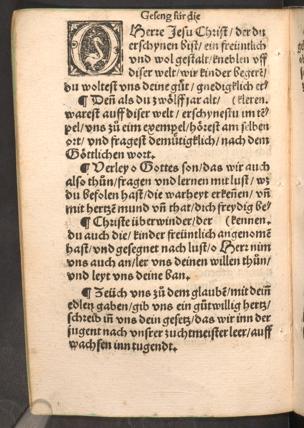 Geseng für die
O Herre Jesu Christ / der du
erschynen bist / ein freüntlich
und wol gestalt / kneblen vff
diser welt / wir kinder begerẽ /
du woltest vns deine güt / gnedigklich er⸗
¶ Deñ als du zwölff jar alt / (kleren.
warest auff diser welt / erschynestu im tẽ⸗
pel / vns zů eim exempel / hörest am selben
ort / und fragest demütigklich / nach dem
Göttlichen wort.
¶ Verley o Gottes son / das wir auch
also thün / fragen vnd lernen mit lust / wz
du befolen hast / die warheyt erkennen / vñ
mit hertzẽ mund vñ that / dich freydig be⸗
¶ Christe überwinder / der (kennen.
du auch die / kinder freüntlich angenomẽ
hast / vnd gesegnet nach lust / o Herr nim
vns auch an / ler vns deinen willen thün /
vnd leyt vns deine ban.
¶ Zeüch vns zů dem glaubẽ / mit deiñ
edlen gaben / gib vns ein gütwillig hertz /
schreib iñ vns dein gesetz / das wir inn der
jugent nach vnsrer zuchtmeister leer / auff
wachsen inn tugendt.